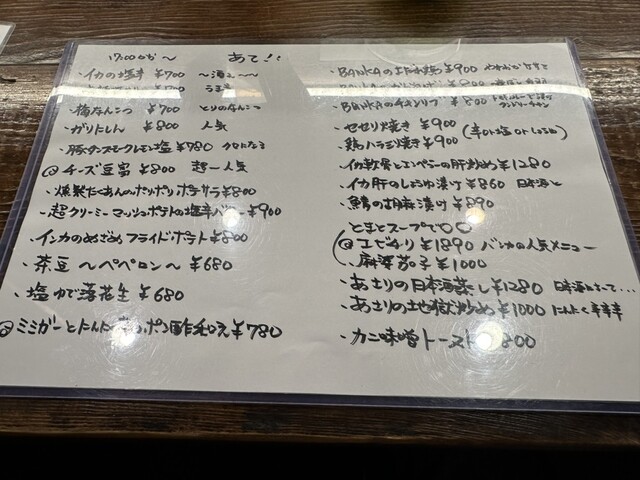 17:00から〜 あて!!
・イカの塩辛 ¥700 〜酒ェ〜〜
・梅なんこつ ¥700 とりのなんこつ
・ガリたしん ¥800 人気
・豚タン ¥780
チーズ豆富 ¥800 超一人気
・燻製たくあんのポリポリポテサラ ¥800
・超クリーミーマッシュポテトの塩辛バター ¥900
・インカのめざめフライドポテト ¥800
・茶豆 〜ペペロン〜 ¥680
・塩ゆで落花生 ¥680
ミミガーと ポン酢和え ¥780
・BANKAの ¥900
¥800
・BANKAのチキンリブ ¥800
・セセリ焼き ¥900
・鶏ハラミ焼き ¥900
・イカ軟骨とエンペラーの肝炒め ¥1280
・イカ肝のしょうゆ漬け ¥860 日本酒と
・鯖の胡麻漬け ¥890
とまとスープで〇〇
エビチリ ¥1890 バンカの人気メニュー
・麻婆茄子 ¥1000
・あさりの日本酒蒸し ¥1280 日本酒
・あさりの地獄炒め ¥1000 にんにく辛辛辛
・カニ味噌トースト 800